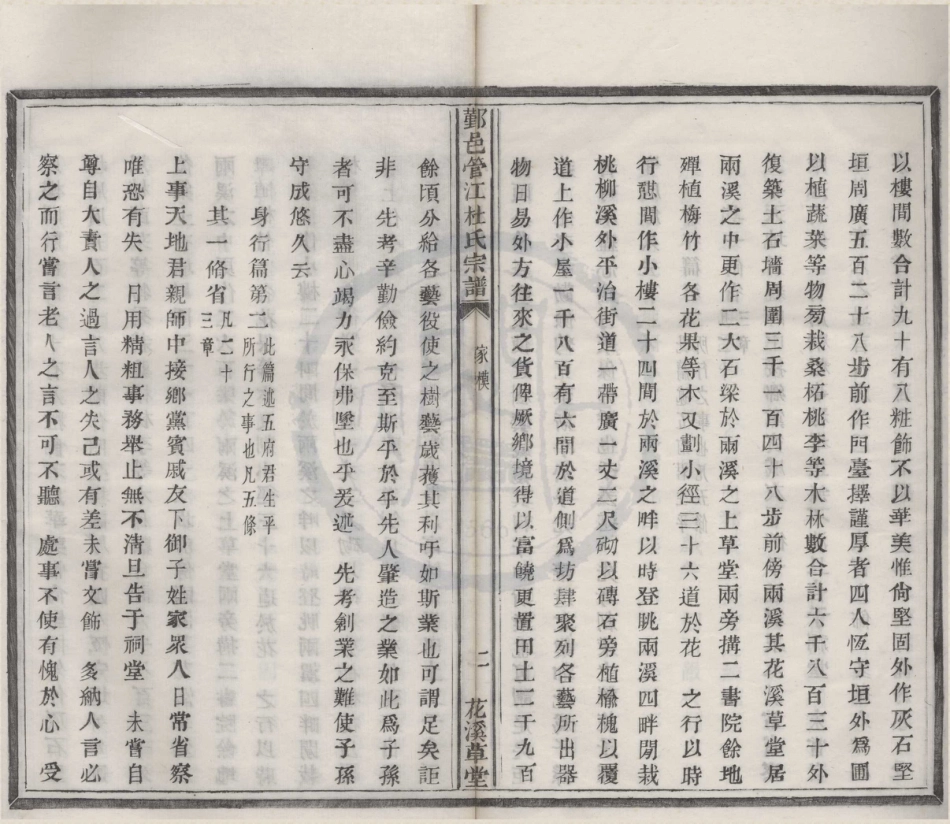 以樓間數合計九十有八粧飾不以華美惟尙堅固外作灰石堅
垣周廣五百二十八步前作門臺擇謹厚者四人恆守垣外爲圃
以植蔬菜等物芴栽桑柘桃李等木林數合計六千八百三十外
復築土石墻周圍三千一百四十八步前傍兩溪其花溪草堂居
兩溪之中更作二大石梁於兩溪之上草堂兩旁搆二書院餘地
殫植梅竹各花果等木又劃小徑三十六道於花 之行以時
行憇間作小樓二十四間於兩溪之畔以時登眺兩溪四畔閒栽
桃柳溪外平治街道一帶廣一丈二尺砌以磚石旁植楡槐以覆
道上作小屋一千八百有六間於道側爲坊肆聚列各藝所出器
物日易外方往來之貨俾厥鄉境得以富饒更置田土二千九百
鄞邑管江杜氏宗譜 家模 二 花溪草堂
餘頃分給各藝役使之樹藝歲獲其利吁如斯業也可謂足矣詎
非 先考辛勤儉約克至斯乎於乎先人肇造之業如此爲子孫
者可不盡心竭力永保弗墜也乎爰述 先考創業之難使子孫
守成悠久云
身行篇第二 此篇述五府君生平所行之事也凡五條
其一脩省 凡二十三章
上事天地君親師中接鄉黨賓戚友下御子姓家眾人日常省察
唯恐有失 日用精粗事務舉止無不淸旦告于祠堂 未嘗自
尊自大責人之過言人之失己或有差未嘗文飾 多納人言必
察之而行嘗言老人之言不可不聽 處事不使有愧於心 受